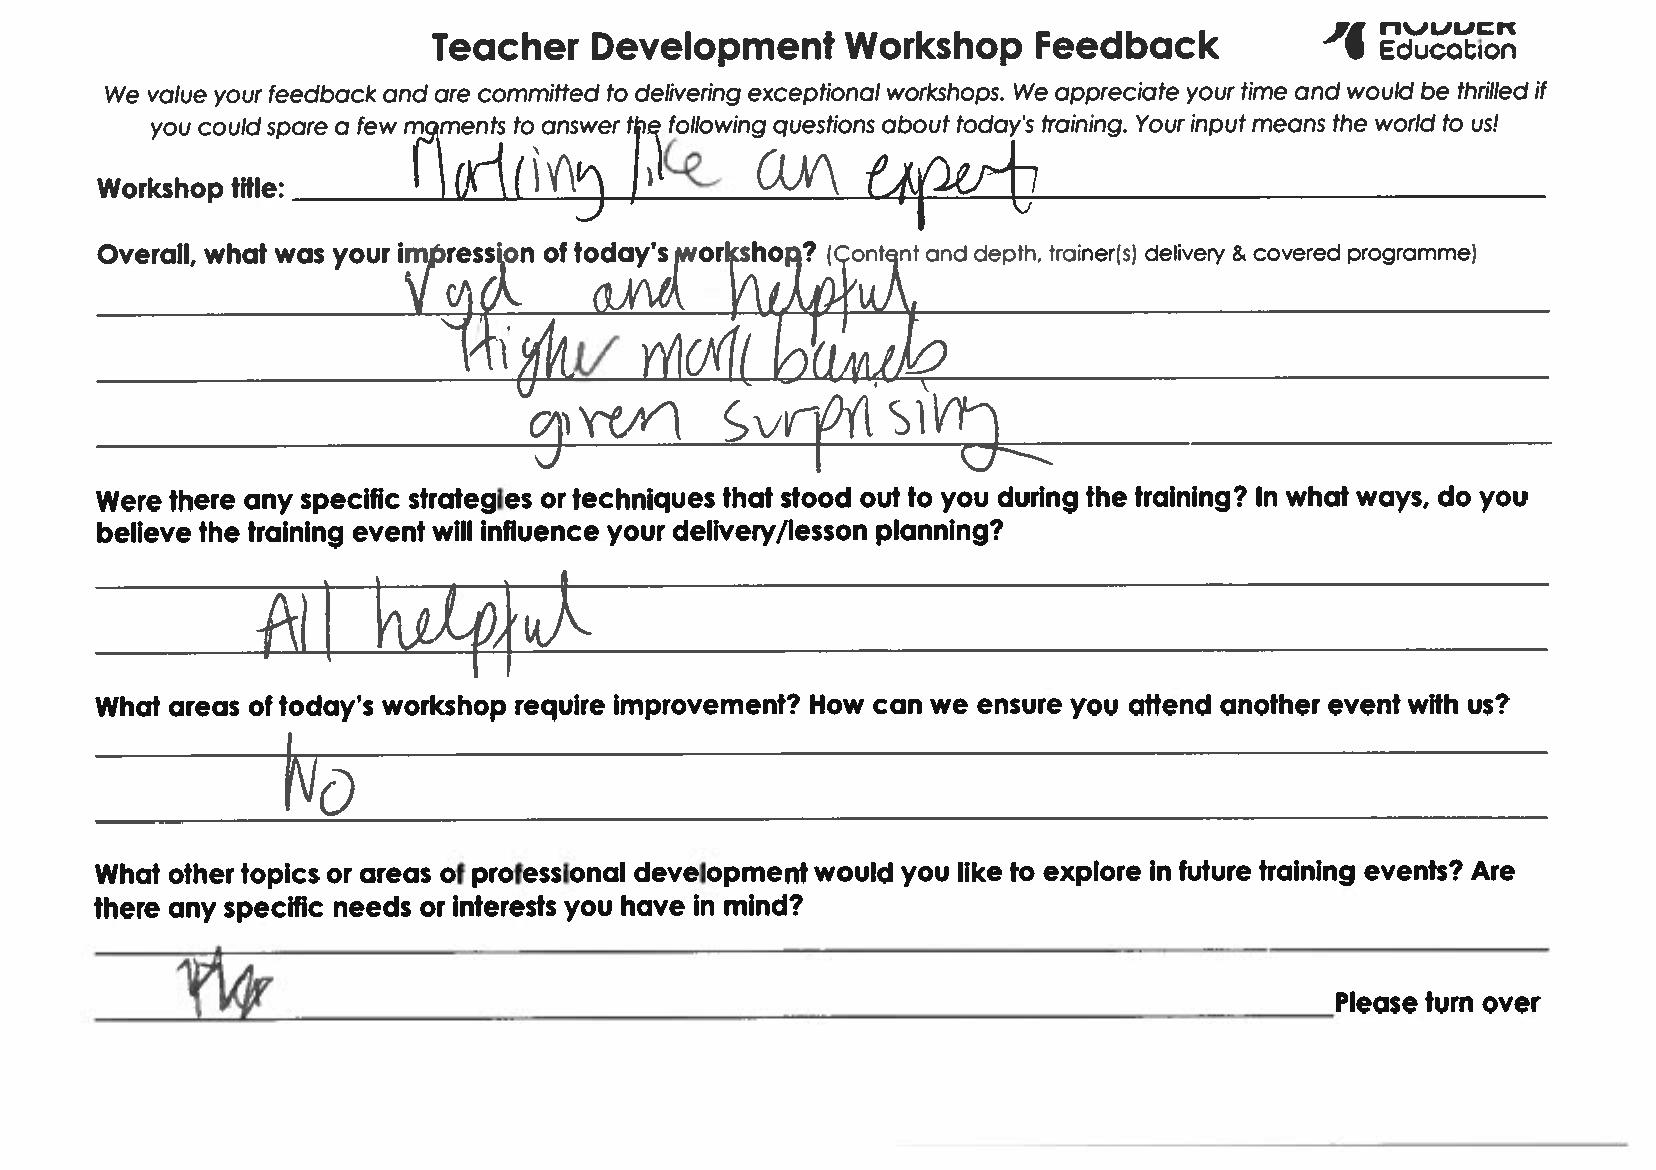 Teacher Development Workshop Feedback
HODDER
Education
We value your feedback and are committed to delivering exceptional workshops. We appreciate your time and would be thrilled if
you could spare a few moments to answer the following questions about today's training. Your input means the world to us!
Workshop title: Marking like an expert
Overall, what was your impression of today's workshop? (Content and depth, trainer(s) delivery & covered programme)
V gd and helpful
Higher mark bands
given surprising
Were there any specific strategies or techniques that stood out to you during the training? In what ways, do you
believe the training event will influence your delivery/lesson planning?
All helpful
What areas of today's workshop require improvement? How can we ensure you attend another event with us?
No
What other topics or areas of professional development would you like to explore in future training events? Are
there any specific needs or interests you have in mind?
Please turn over